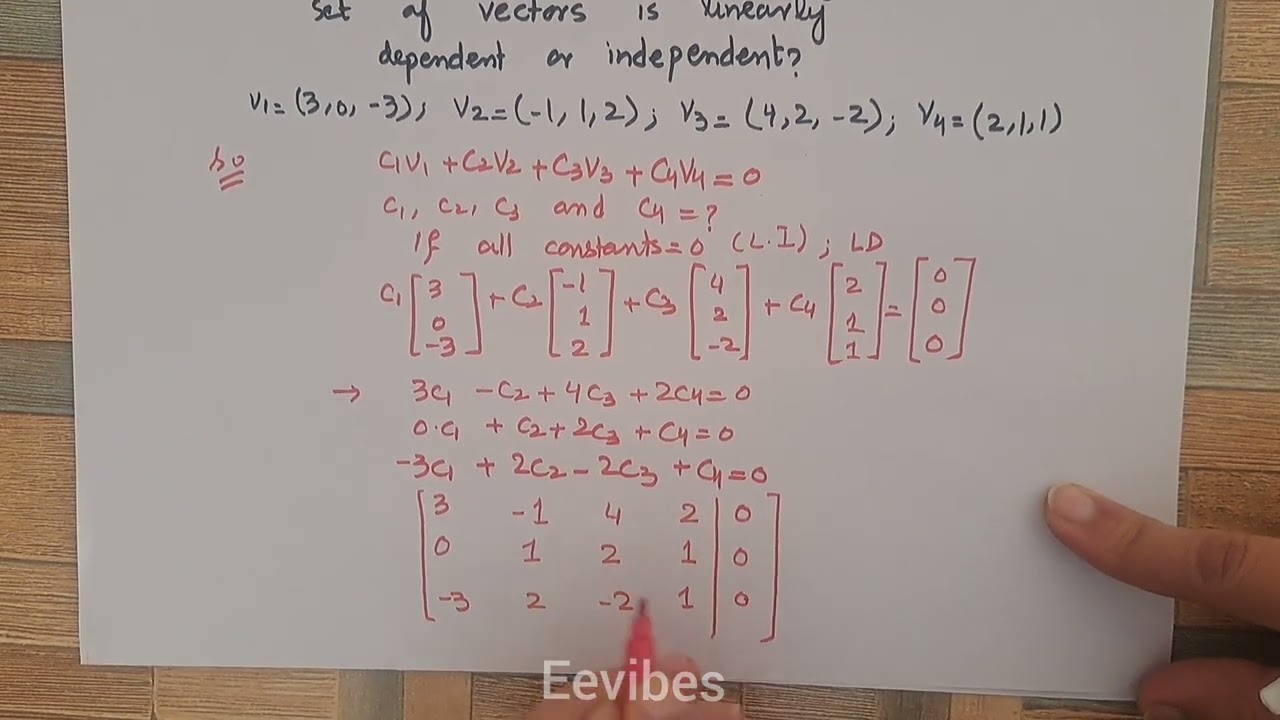 set of vectors is linearly
dependent or independent?
V1=(3,0,-3); V2=(-1,1,2); V3=(4,2,-2); V4=(2,1,1)
so C1V1+C2V2+C3V3+C4V4=0
C1, C2, C3 and C4=?
If all constants=0 (L.I); LD
C1[3 0 -3]+C2[-1 1 2]+C3[4 2 -2]+C4[2 1 1]=[0 0 0]
→ 3C1-C2+4C3+2C4=0
0·C1+C2+2C3+C4=0
-3C1+2C2-2C3+C4=0
[3 -1 4 2 | 0
0 1 2 1 | 0
-3 2 -2 1 | 0]
Eevibes